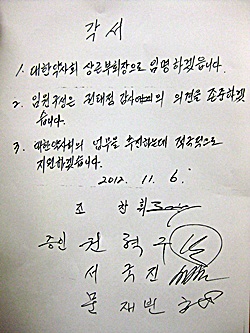 각서
1. 대한약사회 상근부회장으로 임명하겠습니다.
2. 임원구성은 전태점 감사 의 의견을 존중하겠
습니다.
3. 대한약사회의 업무를 추진하는데 적극적으로
지원하겠습니다.
2012. 11. 6.
조 찬 휘
증인 권 혁 구
서 국 진
문 재 빈